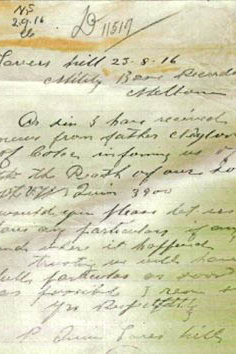 NS
2.9.16
D 11517
Lavers hill 23-8-16
Mility Base Records
Melbou
Dr Sir I have received
news from father Clayton
of Colac informing us of
the Death of our So
Quin 3900
would you please let us
have any particulars if any
and where it happened
trusting we will have
fulls particulas as soon
as possible I rem
Yrs Respectfully
P Quin Lavers hill